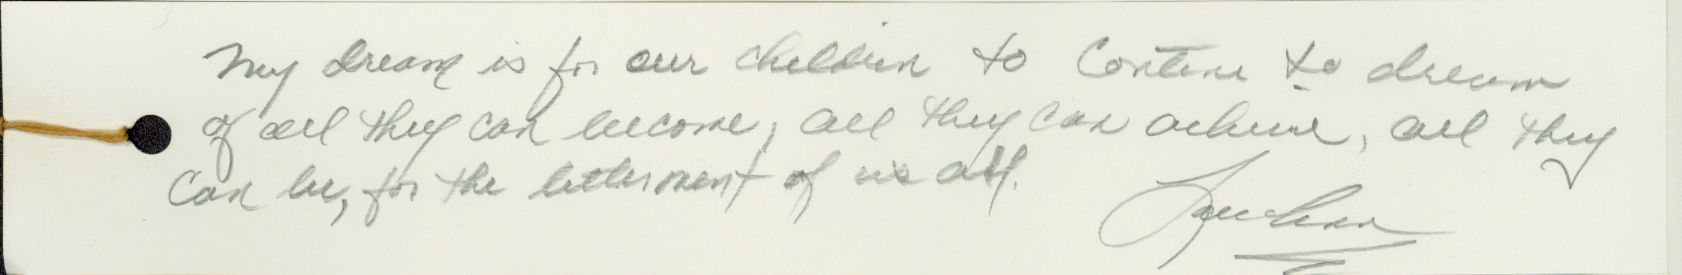 My dream is for our children to continue to dream
of all they can become, all they can achieve, all they
can be, for the betterment of us all.